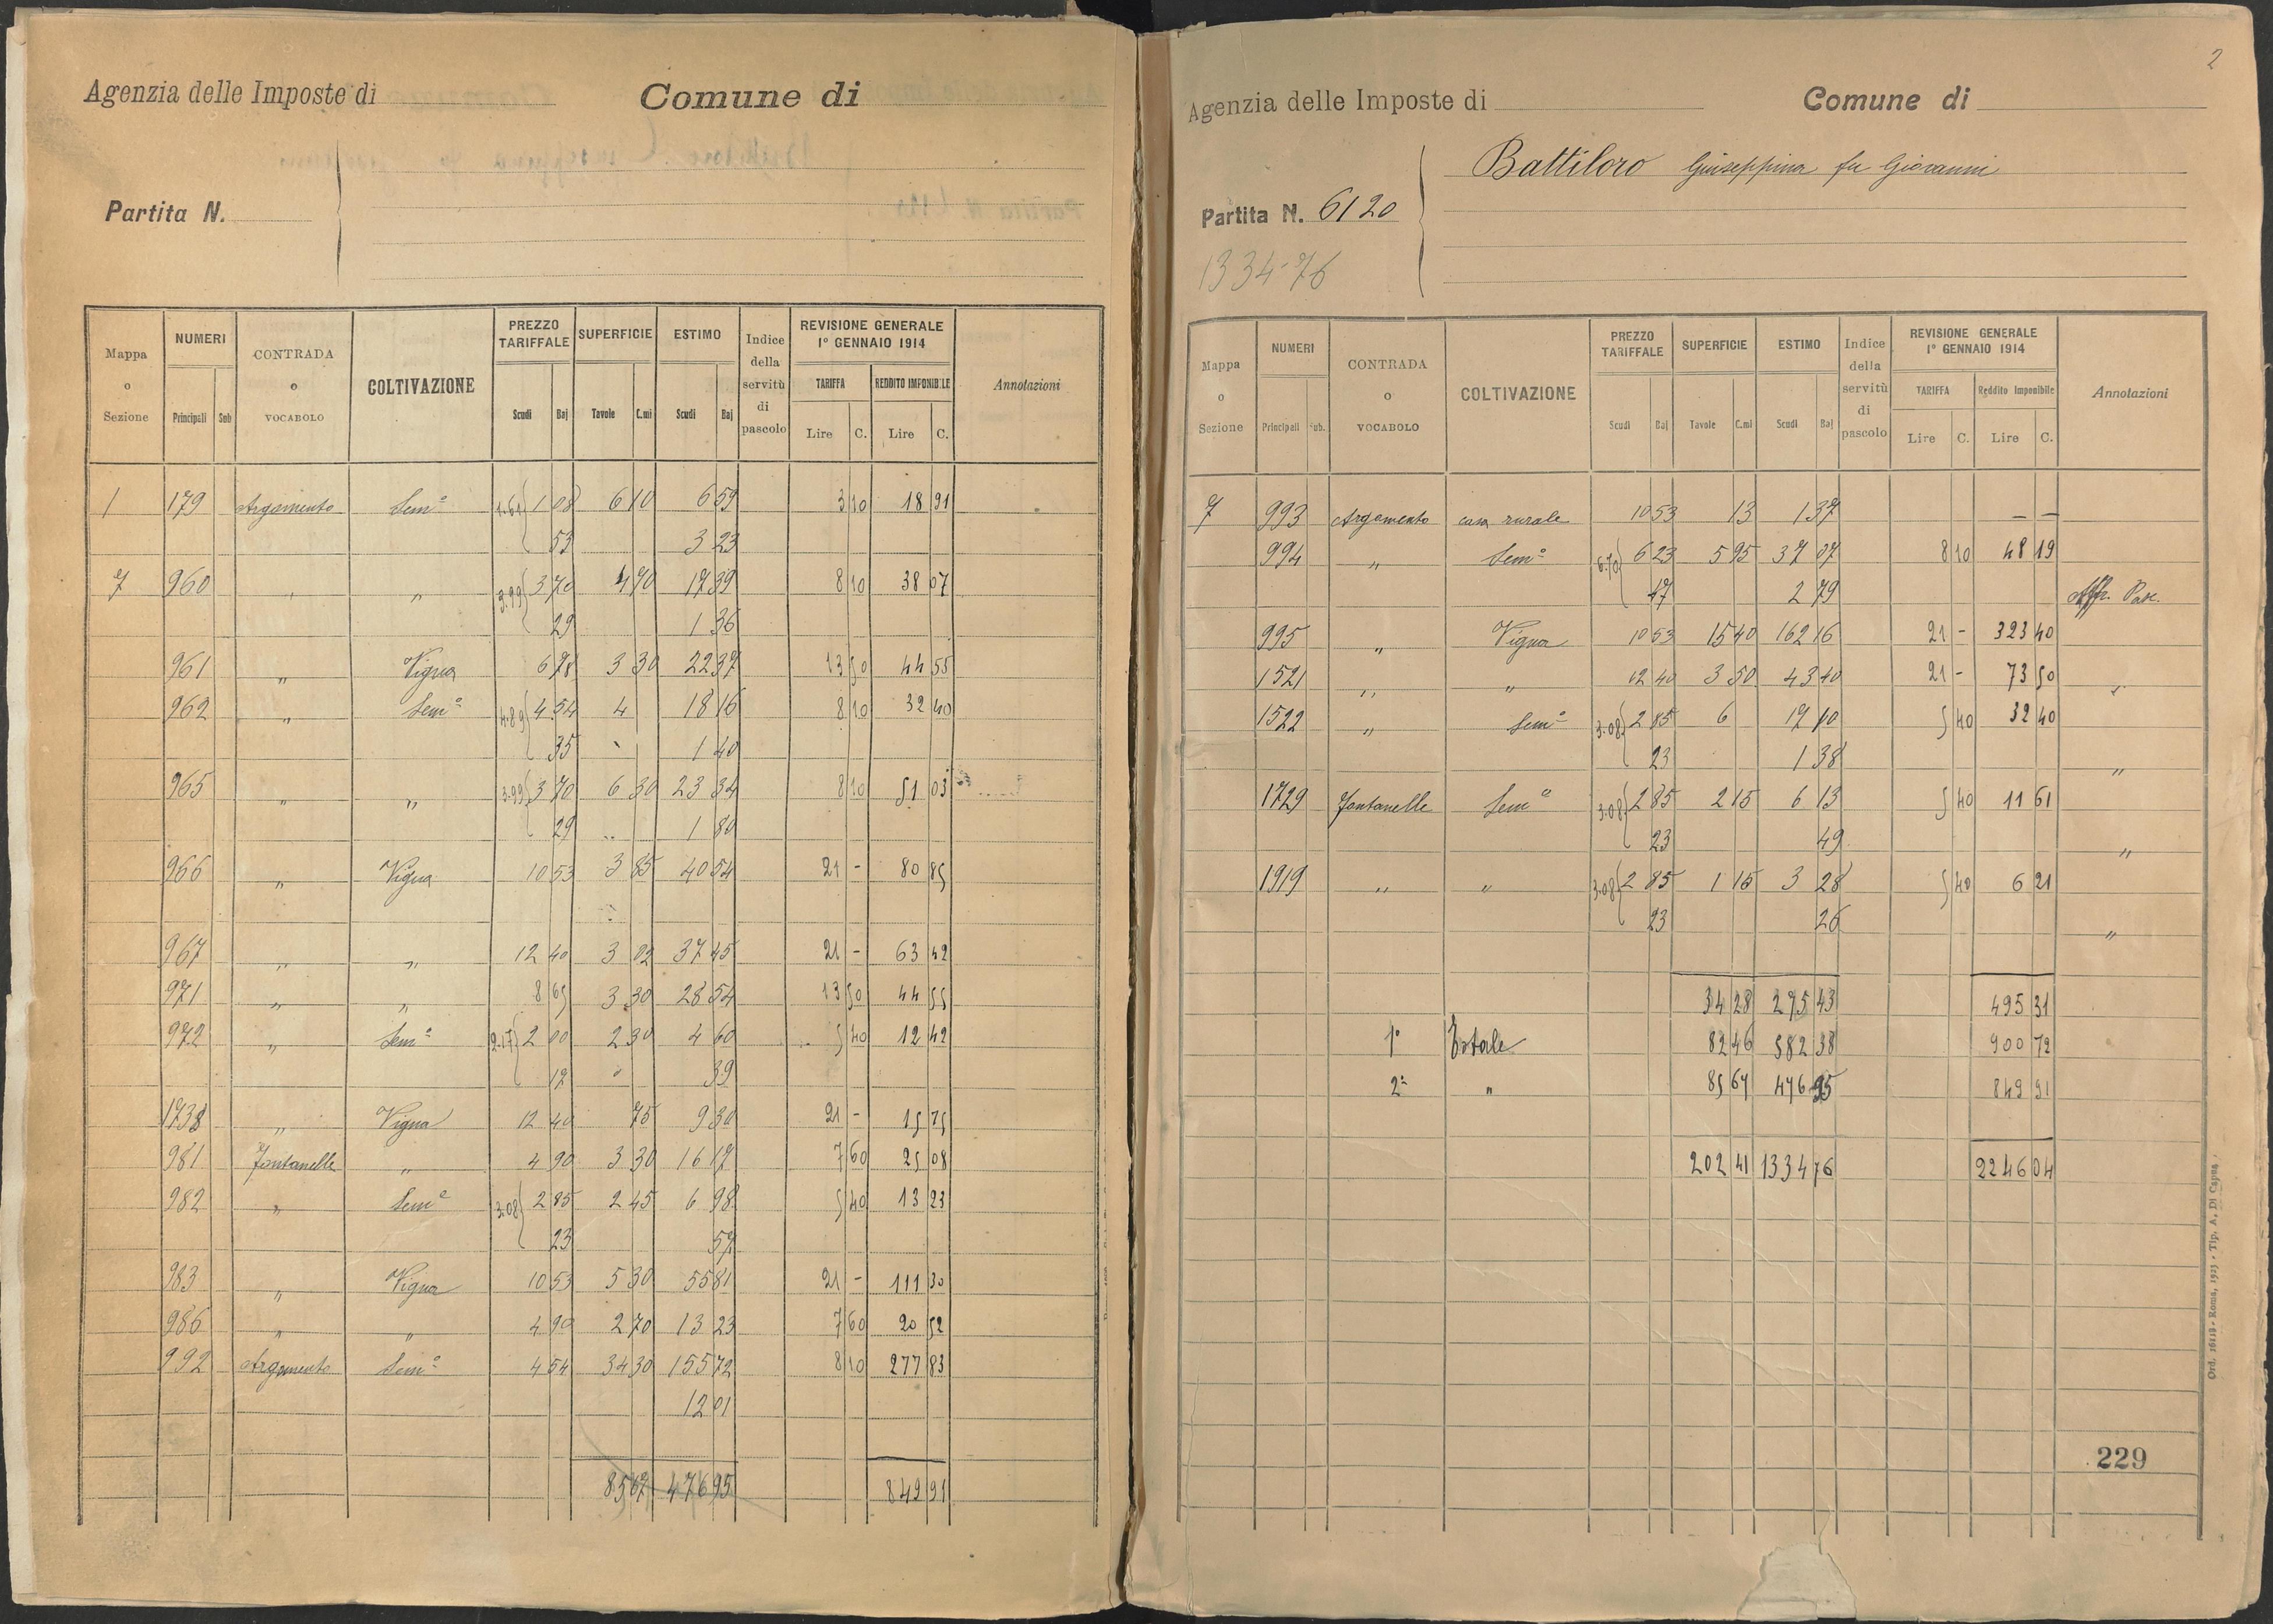 Agenzia delle Imposte di Comune di
Partita N.
Mappa o Sezione NUMERI Principali Sub CONTRADA o VOCABOLO COLTIVAZIONE PREZZO TARIFFALE Scudi Baj SUPERFICIE Tavole C.mi ESTIMO Scudi Baj Indice della servitù di pascolo REVISIONE GENERALE 1° GENNAIO 1914 TARIFFA Lire C. REDDITO IMPONIBILE Lire C. Annotazioni
1 179 Argamento Sem° 1.61 1 08 6 10 6 59 3 10 18 91
53 3 23
7 960 " " 3.99 3 70 4 70 17 39 8 10 38 07
29 1 36
961 " Vigna 6 78 3 30 22 37 13 50 44 55
962 " Sem° 4.89 4 54 4 18 16 8 10 32 40
35 1 40
965 " " 3.99 3 70 6 30 23 34 8 10 51 03
29 1 80
966 " Vigna 10 53 3 85 40 54 21 - 80 85
967 " " 12 40 3 02 37 45 21 - 63 42
971 " " 8 65 3 30 28 54 13 50 44 55
972 " Sem° 2.17 2 00 2 30 4 60 5 40 12 42
17 39
1738 " Vigna 12 40 75 9 30 21 - 15 75
981 Fontanelle " 4 90 3 30 16 17 7 60 25 08
982 " Sem° 3.08 2 85 2 45 6 98 5 40 13 23
23 57
983 " Vigna 10 53 5 30 55 81 21 - 111 30
986 " " 4 90 2 70 13 23 7 60 20 52
992 Argamento Sem° 4 54 34 30 155 72 8 10 277 83
12 01
85 67 476 95 849 91
2
Agenzia delle Imposte di Comune di
Battiloro Giuseppina fu Giovanni
Partita N. 6120
1334-76
Mappa o Sezione NUMERI Principali Sub. CONTRADA o VOCABOLO COLTIVAZIONE PREZZO TARIFFALE Scudi Baj SUPERFICIE Tavole C.mi ESTIMO Scudi Baj Indice della servitù di pascolo REVISIONE GENERALE 1° GENNAIO 1914 TARIFFA Lire C. Reddito Imponibile Lire C. Annotazioni
7 993 Argamento casa rurale 10 53 13 1 37 — —
994 " Sem° 6.70 6 23 5 95 37 07 8 10 48 19
47 2 79 Affr. Pasc.
995 " Vigna 10 53 15 40 162 16 21 - 323 40
1521 " " 12 40 3 50 43 40 21 - 73 50 "
1522 " Sem° 3.08 2 85 6 17 10 5 40 32 40
23 1 38 "
1729 Fontanelle Sem° 3.08 2 85 2 15 6 13 5 40 11 61
23 49 "
1919 " " 3.08 2 85 1 15 3 28 5 40 6 21
23 26 "
34 28 275 43 495 31
1° Totale 82 46 582 38 900 72
2° " 85 67 476 95 849 91
202 41 1334 76 2246 04
229
Ord. 16113 - Roma, 1923 - Tip. A. Di Capua